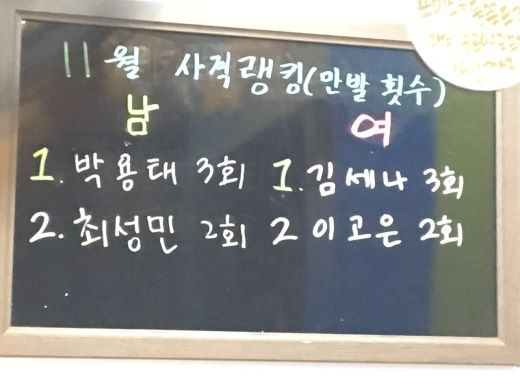 11월 사적랭킹(만발 횟수)
남 여
1. 박용태 3회 1. 김세나 3회
2. 최성민 2회 2 이고은 2회